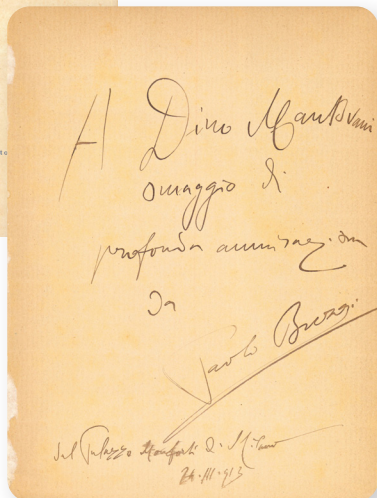 A Dino Mantovani
omaggio di
profonda ammirazion
Da
Paolo
dal Palazzo Monforte di Milano
24.III.913